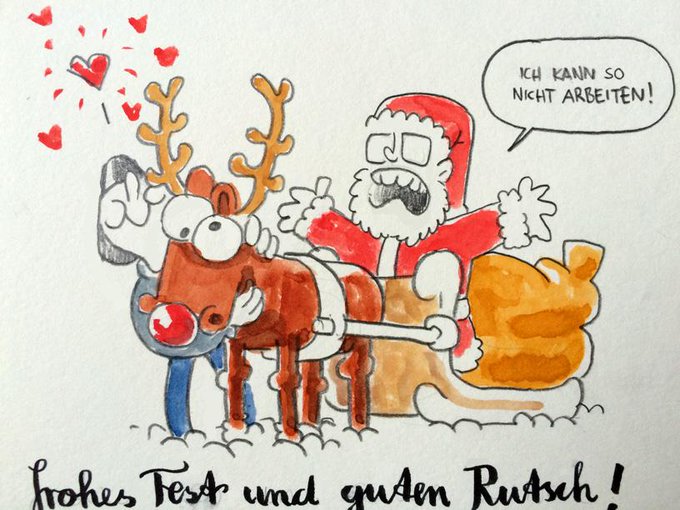 ICH KANN SO
NICHT ARBEITEN!
frohes Fest und guten Rutsch!